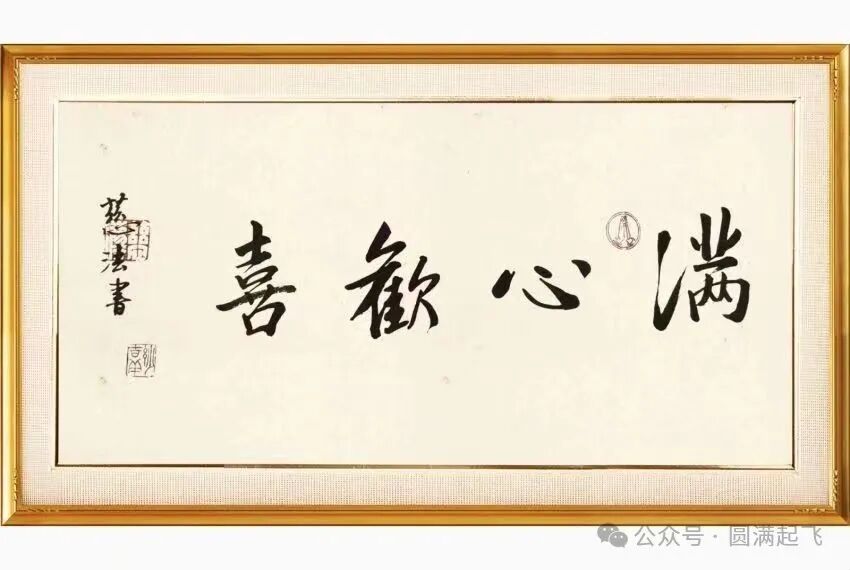 满心歡喜
慈法書
公众号·圆满起飞